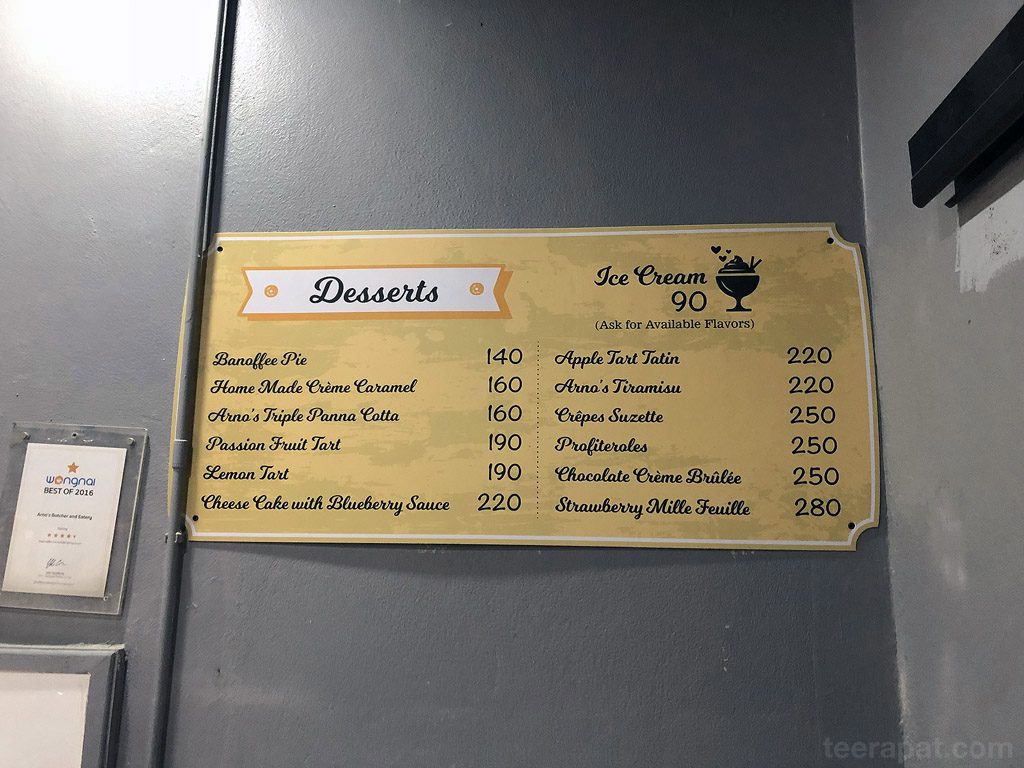 Desserts
Banoffee Pie 140
Home Made Crème Caramel 160
Arno's Triple Panna Cotta 160
Passion Fruit Tart 190
Lemon Tart 190
Cheese Cake with Blueberry Sauce 220
Ice Cream
90
(Ask for Available Flavors)
Apple Tart Tatin 220
Arno's Tiramisu 220
Crêpes Suzette 250
Profiteroles 250
Chocolate Crème Brûlée 250
Strawberry Mille Feuille 280
wongnai
BEST OF 2016
Arno's Butcher and Eatery
teerapat.com